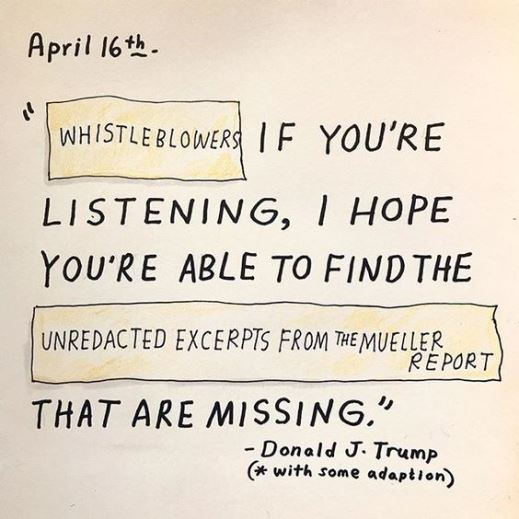 April 16th.
"WHISTLEBLOWERS IF YOU'RE
LISTENING, I HOPE
YOU'RE ABLE TO FIND THE
UNREDACTED EXCERPTS FROM THE MUELLER
REPORT
THAT ARE MISSING."
- Donald J. Trump
(* with some adaption)